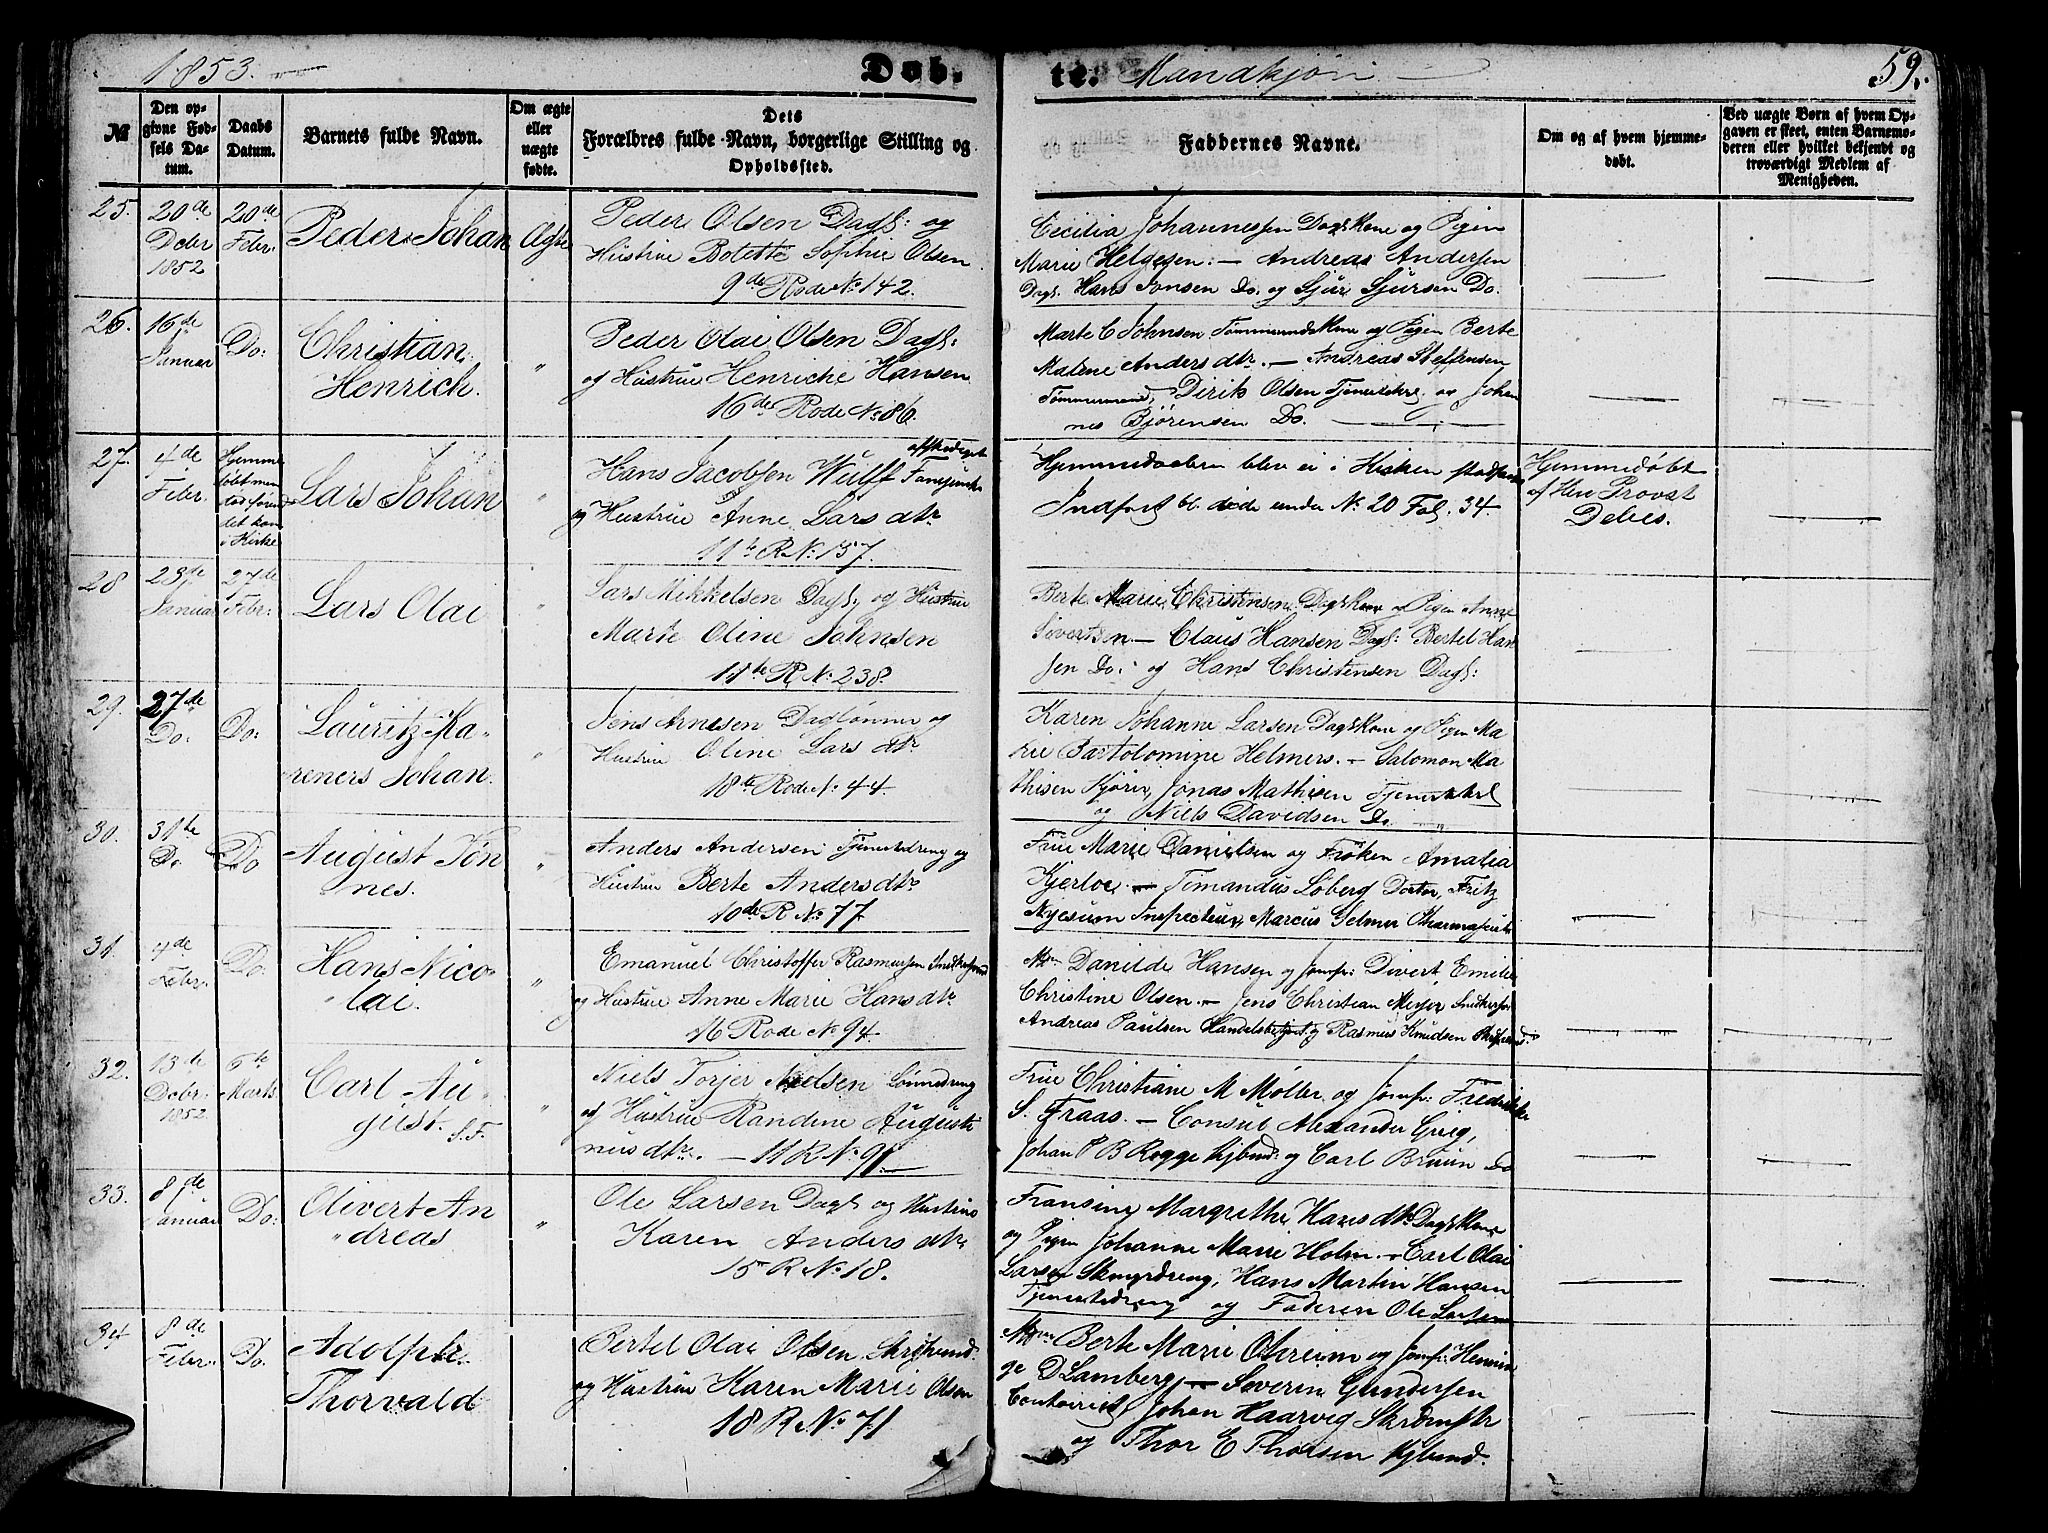 1853. Døb- te. Mandkjøn 59.
№
Den op-
givne Fød-
sels Da-
tum.
Daabs
Datum.
Barnets fulde Navn.
Om ægte
eller
uægte
fødte.
Dets
Forældres fulde Navn, borgerlige Stilling og
Opholdssted.
Faddernes Navne.
Om og af hvem hjemme-
døbt.
Ved uægte Børn af hvem Op-
gaven er skeet, enten Barnemo-
deren eller hvilket bekjendt og
troværdigt Medlem af
Menigheden.
25.
20de
Decbr
1852
20de
Febr.
Peder Johan
Ægte
Peder Olsen Dagl: og
Hustrue Botette Sophie Olsen
9de Rode No 142.
Cecilia Johannessen Dagl Kone og Pigen
Marie Helgesen. — Andreas Andersen
Dagl. Hans Jonsen Do. og Sjur Sjursen Do.
26.
16de
Januar
Do:
Christian
Henrich.
"
Peder Olai Olsen Dagl:
og Hustrue Henriche Hansen
16de Rode No 86.
Marte C Johnsen Tømmermd Kone og Pigen Berte
Malene Andersdtr. — Andreas Steffensen
Tømmermand, Dirik Olsen Tjenestekrl. og Johan
nes Bjørensen Do.
27.
4de
Febr.
Hjemme
døbt men
død føren
det kom
i Kirke
Lars Johan
"
Hans Jacobsen Wulff afskediget
og Hustrue Anne Larsdtr.
11te R No 137.
Hjemmedaaben blev ei i Kirken
Indført bl. døde under No 20 Fol. 34.
Hjemmedøbt
af Hr. Provst
Debes.
28
23de
Januar
27de
Febr:
Lars Olai
"
Lars Mikkelsen Dagl. og Hustrue
Marte Oline Johnsen
11te R No 238.
Berte Marie Christensen Dagl Kone og Pigen Anne
Sivertsen. — Claus Hansen Dagl: Bertel Han
sen Do: og Hans Christensen Dagl:
29.
27de
Do:
Do:
Lauritz Ka-
reners Johan
"
Jens Arnesen Daglønner og
Hustrue Oline Larsdtr
18te Rode No 44.
Karen Johanne Larsen Dagl Kone og Pigen Ma
rie Bartolomine Helmers. — Salomon Ma
thisen Jonas Mathisen
og Niels Davidsen Do.
30.
31te
Do
Do
August Jon
nes.
"
Anders Andersen Tjenestedreng og
Hustrue Berte Andersdtr.
10de R No 77.
Frue Marie Danielsen og Frøken Amalia
— Timandus Løberg Doctor, Fritz
Inspecteur, Marcus Gelmer
31.
4de
Febr.
Do:
Hans Nico-
lai.
"
Emanuel Christoffer Rasmussen
og Hustrue Anne Marie Hansdtr.
16 Rode No 94.
Danilde Hansen og Jomfr: Divert Emilie
Christine Olsen. — Jens Christian Meyer
Andreas Paulsen Handelsbetjent og Rasmus Knudsen
32.
13de
Decbr.
1852.
6te
Marts
Carl Au-
gust. S.F.
"
Niels Torjer Nielsen Lønnedreng
og Hustrue Randine Augusti
nusdtr. — 11 R No 91.
Frue Christiane M Møller og Jomfr: Fredrikke
S. Fraas. — Consul Alexander Grieg,
Johan P B Rogge Kjbmd. og Carl Bruun Do
33.
8de
Januar
Do:
Olivert An
dreas
"
Ole Larsen Dagl og Hustrue
Karen Andersdtr.
15 R No 18.
Fransine Margrethe Hansdtr Dagl Kone
og Pigen Johanne Marie Holm. — Carl Olai
Larsen Hans Martin Hansen
Tjenestedreng og Faderen Ole Larsen
34.
8de
Febr.
Do.
Adolph
Thorvald
Bertel Olai Olsen
og Hustrue Karen Marie Olsen
18 R No 71
Berte Marie Ohreim og Jomfr: Hennin
ge D Lamberg — Severin Gundersen
Contoirist, Johan Haarvig
og Thor E Thorsen Kjbmd.